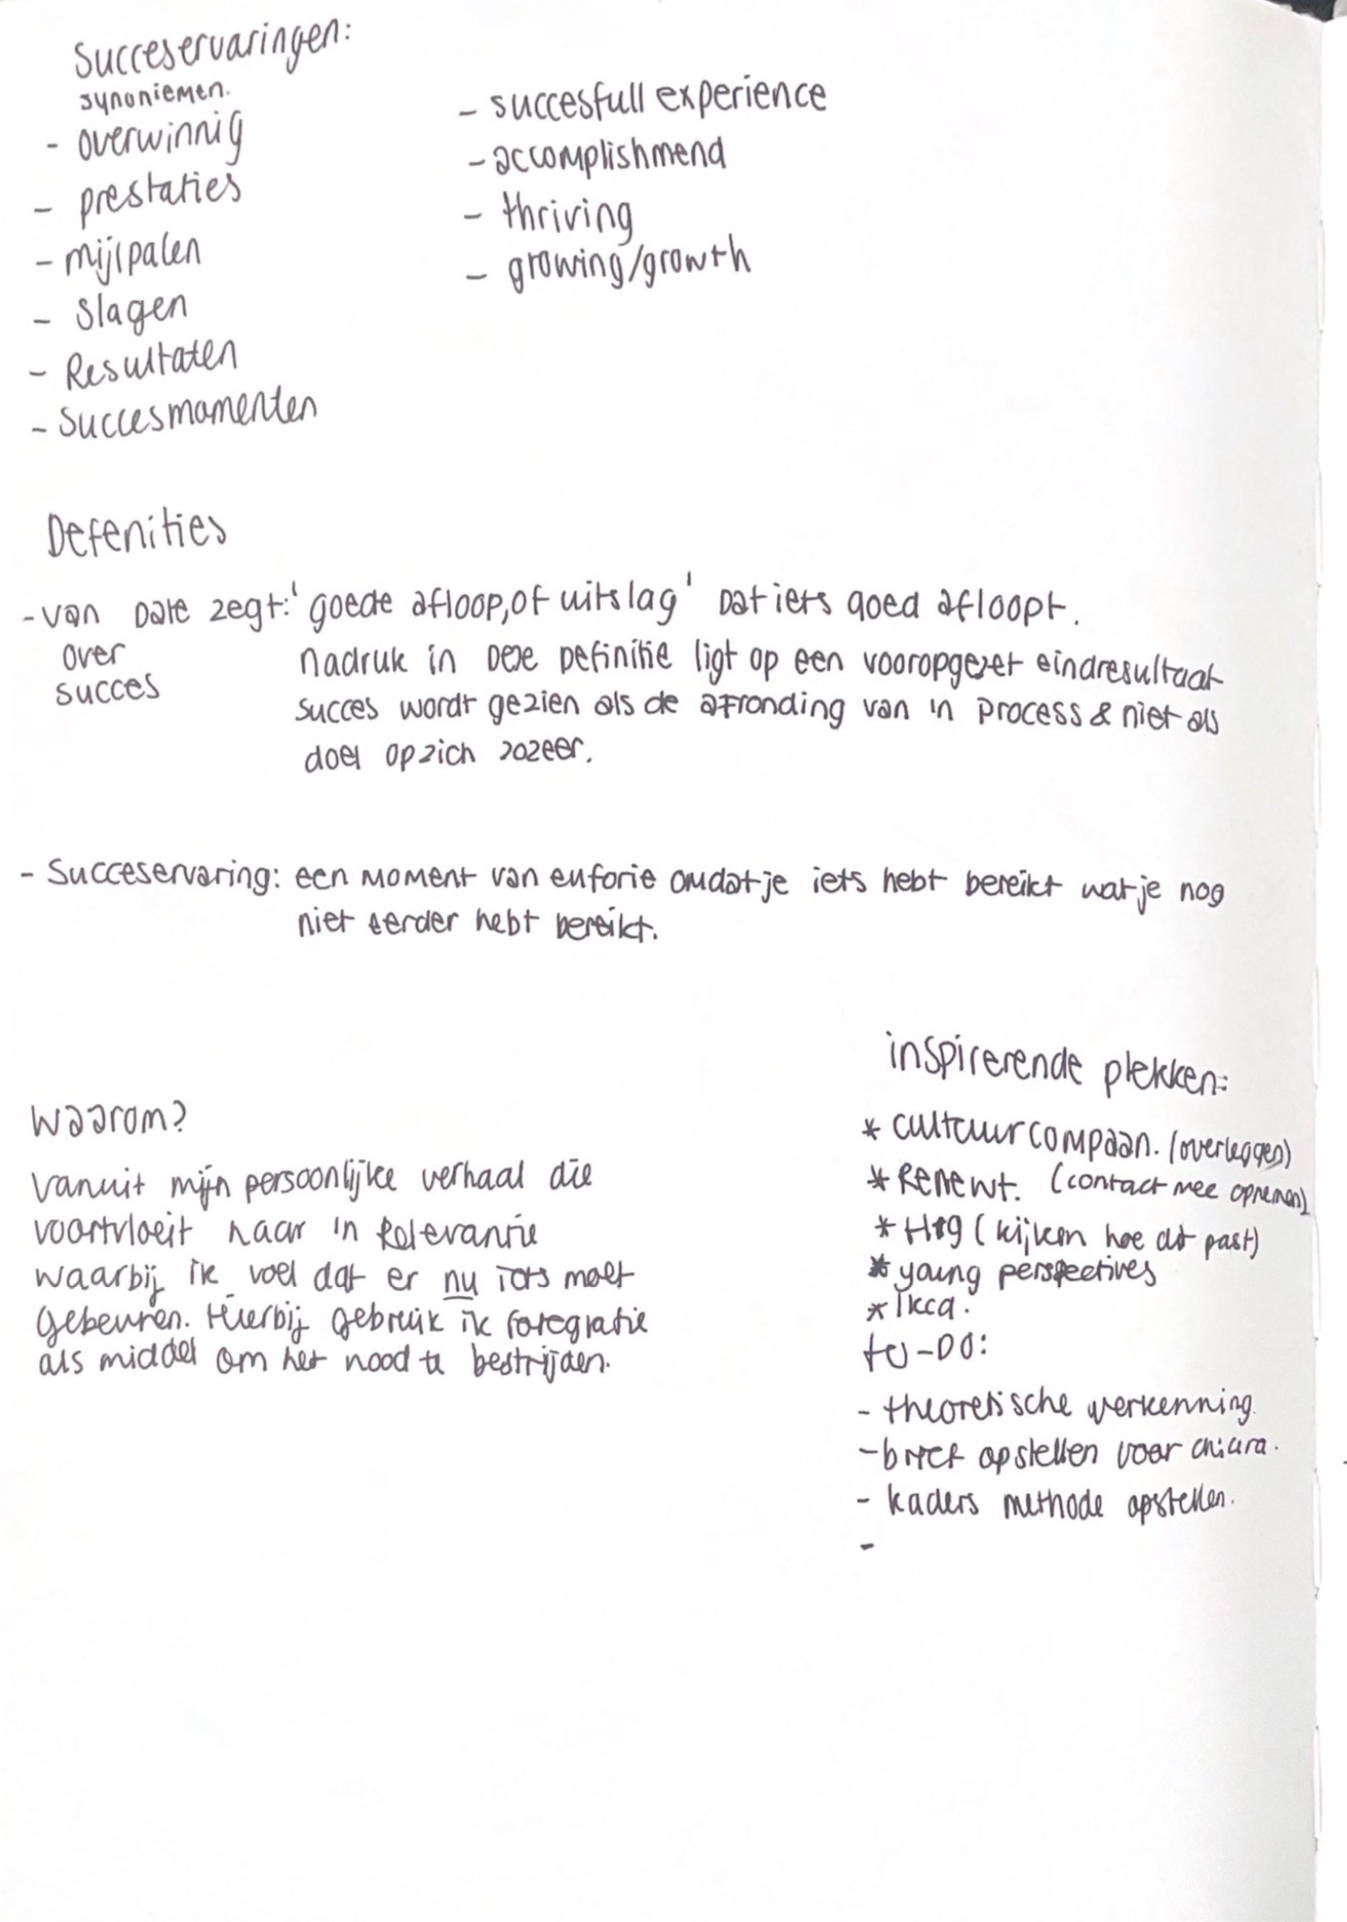 Succeservaringen:
synoniemen.
- overwinnig
- prestaties
- mijlpalen
- Slagen
- Resultaten
- Succesmomenten
- succesfull experience
- accomplishmend
- thriving
- growing/growth
Defenities
- van Dale zegt: 'goede afloop, of uitslag' Dat iets goed afloopt.
over
succes
nadruk in Deze Definitie ligt op een vooropgezet eindresultaat
succes wordt gezien als de afronding van in process & niet als
doel op zich zozeer.
- Succeservaring: een moment van euforie omdat je iets hebt bereikt wat je nog
niet eerder hebt bereikt.
Waarom?
Vanuit mijn persoonlijke verhaal die
voortvloeit naar in Relevantie
waarbij ik voel dat er nu iets moet
gebeuren. Hierbij gebruik ik fotografie
als middel om het nood te bestrijden.
inspirerende plekken:
* Cultuurcompaan. (overleggen)
* Renewt. (contact mee opnemen)
* (kijken hoe dit past)
* young perspectives
* lkca.
to-Do:
- theoretische verkenning.
- brief opstellen voor chiara.
- kaders methode opstellen.
-